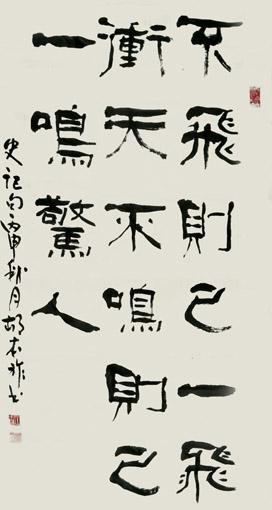 不飛則已一飛
衝天不鳴則已
一鳴驚人
史記句丙申秋月胡本祚書